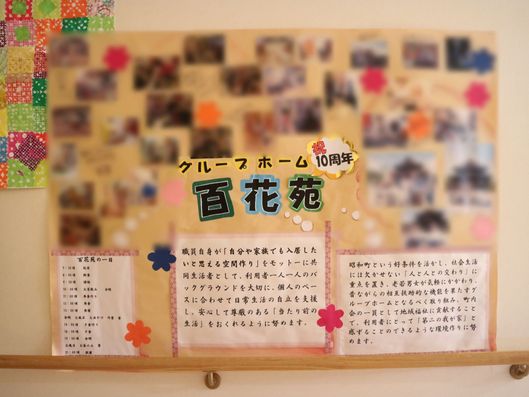 グループホーム
祝
10周年
百花苑
百花苑の一日
職員自身が「自分や家族でも入居した
いと思える空間作り」をモットーに共
同生活者として、利用者一人一人のバ
ックグラウンドを大切に、個人のペー
スに合わせて日常生活の自立を支援
し、安心して尊厳のある「当たり前の
生活」をおくれるように努めます。
昭和町という好条件を活かし、社会生活
には欠かせない「人と人との交わり」に
重点を置き、老若男女が気軽にかかわり、
昔ながらの相互扶助的な機能を果たすグ
ループホームとなるべく取り組み、町内
会の一員として地域福祉に貢献すること
で、利用者にとって「第二の我が家」と
感ずることのできるような環境作りに努
めます。